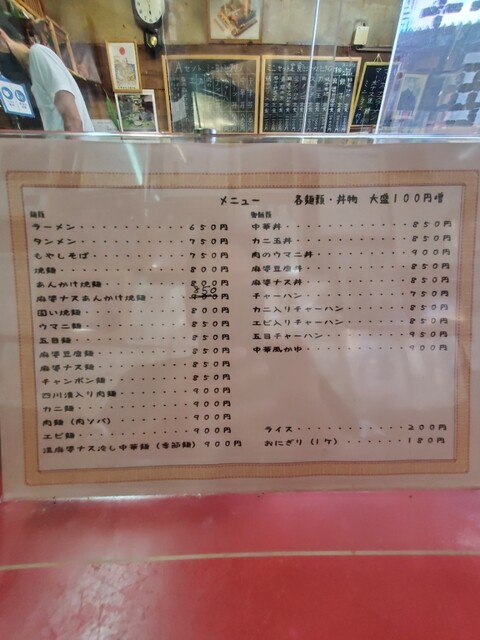 メニュー 各麺類・丼物 大盛100円増
麺類
ラーメン 650円
タンメン 750円
もやしそば 750円
焼麺 800円
あんかけ焼麺 800円
麻婆ナスあんかけ焼麺 850 900円
固い焼麺 800円
ウマニ麺 850円
五目麺 850円
麻婆豆腐麺 850円
麻婆ナス麺 850円
チャンポン麺 850円
四川漬入り肉麺 900円
カニ麺 900円
肉麺(肉ソバ) 900円
エビ麺 900円
麻婆ナス冷し中華麺(季節麺) 900円
御飯類
中華丼 850円
カニ玉丼 850円
肉のウマニ丼 900円
麻婆豆腐丼 850円
麻婆ナス丼 850円
チャーハン 750円
カニ入りチャーハン 850円
エビ入りチャーハン 850円
五目チャーハン 950円
中華風かゆ 900円
ライス 200円
おにぎり(1ケ) 180円